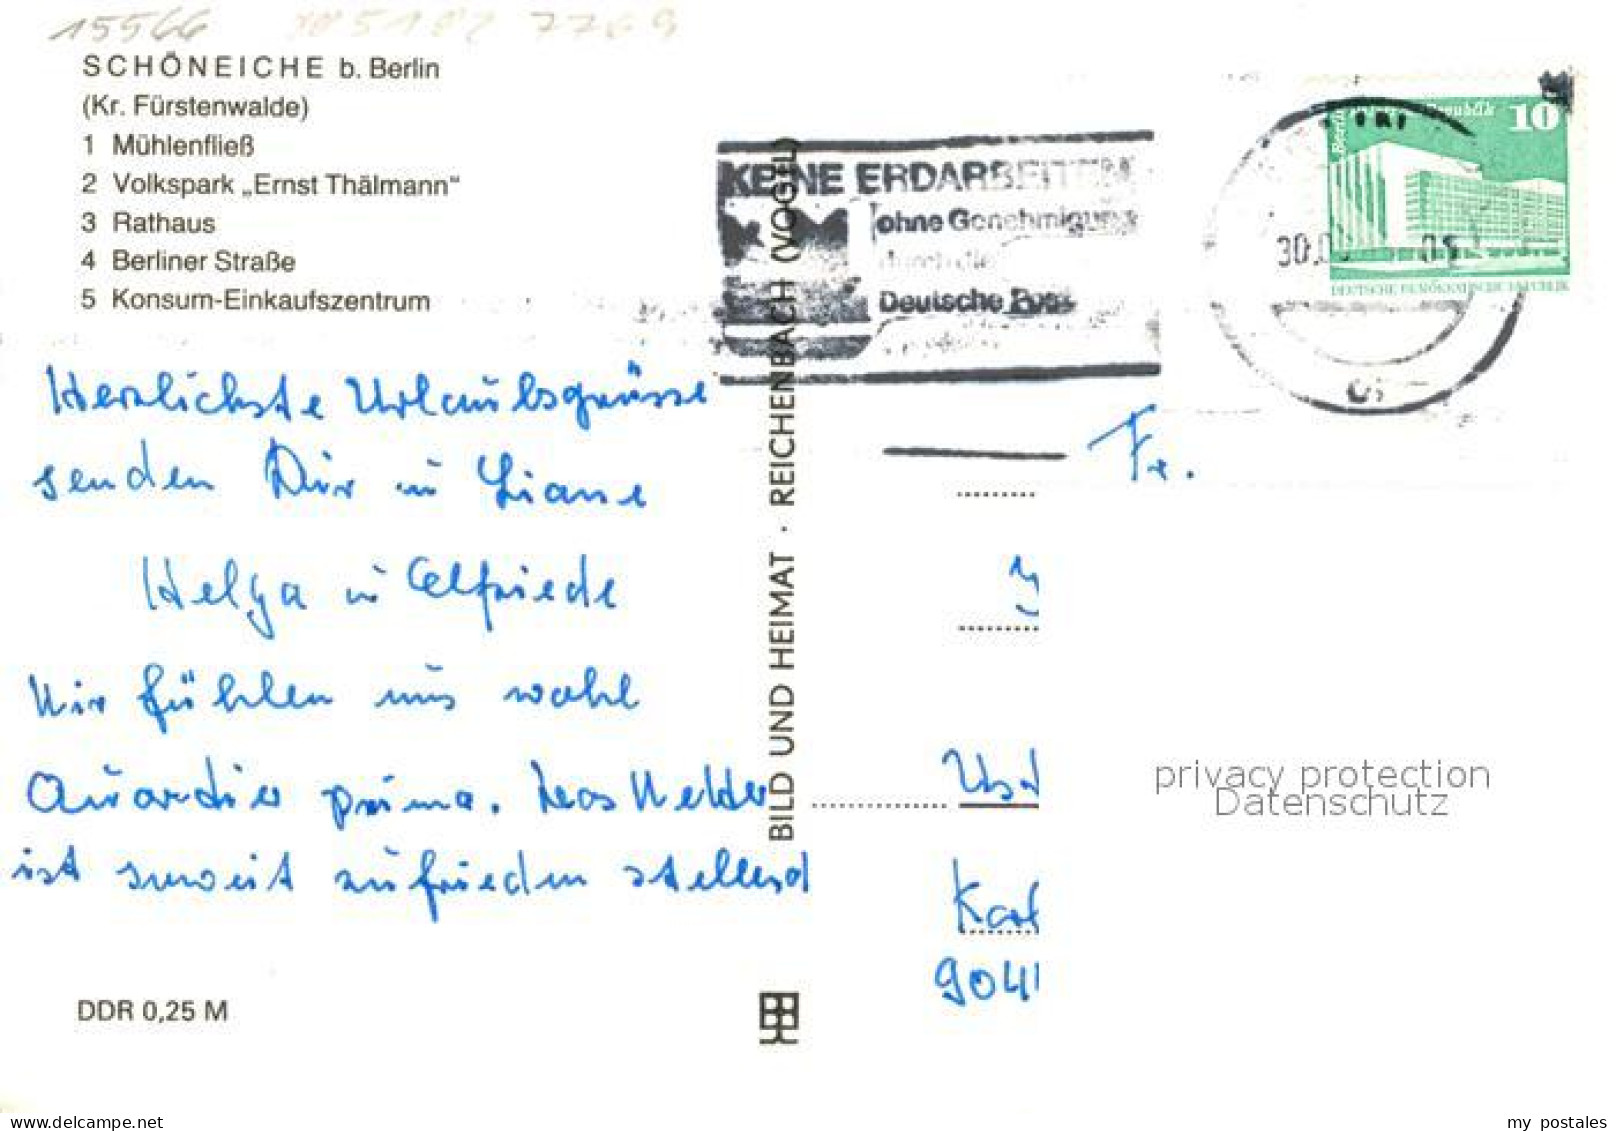 15566
SCHÖNEICHE b. Berlin
(Kr. Fürstenwalde)
1 Mühlenfließ
2 Volkspark „Ernst Thälmann“
3 Rathaus
4 Berliner Straße
5 Konsum-Einkaufszentrum
Herzlichste Urlaubsgrüsse
senden Dir u Liane
Helga u Elfriede
Wir fühlen uns wohl
Quartier prima. Das Wetter
ist soweit zufrieden stellend
DDR 0,25 M
BILD UND HEIMAT · REICHENBACH (VOGTL)
KEINE ERDARBEITEN
ohne Genehmigung
durch die
Deutsche Post
10
30.
Fr.
Kar
904
privacy protection
Datenschutz
www.delcampe.net
my_postales